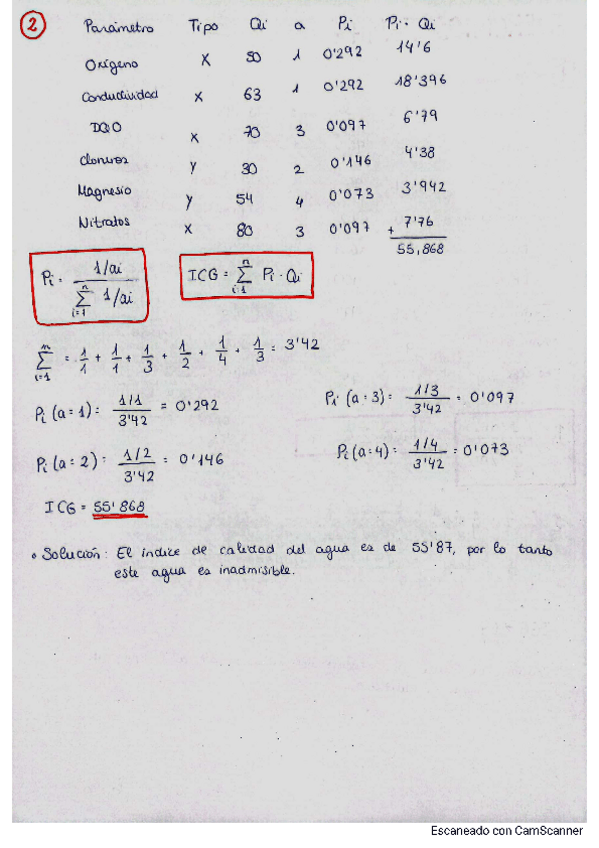 2 Parámetro Tipo Qi a Pi Pi · Qi
Oxígeno X 50 1 0'292 14'6
Conductividad X 63 1 0'292 18'396
DQO X 70 3 0'097 6'79
Cloruros Y 30 2 0'146 4'38
Magnesio Y 54 4 0'073 3'942
Nitratos X 80 3 0'097 + 7'76
55,868
Pi = (1/ai) / (n Σ i=1 1/ai) ICG = n Σ i=1 Pi · Qi
n Σ i=1 = 1/1 + 1/1 + 1/3 + 1/2 + 1/4 + 1/3 = 3'42
Pi (a = 1) = (1/1) / 3'42 = 0'292 Pi (a = 3) = (1/3) / 3'42 = 0'097
Pi (a = 2) = (1/2) / 3'42 = 0'146 Pi (a = 4) = (1/4) / 3'42 = 0'073
ICG = 55'868
• Solución: El índice de calidad del agua es de 55'87, por lo tanto
este agua es inadmisible.
Escaneado con CamScanner